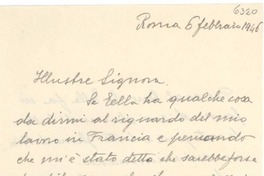 6320
Roma 6 febbraio 1946
Illustre Signora
Se Ella ha qualche cosa
da dirmi al riguardo del mio
lavoro in Francia e pensando
che mi è stato detto che sarebbe forse